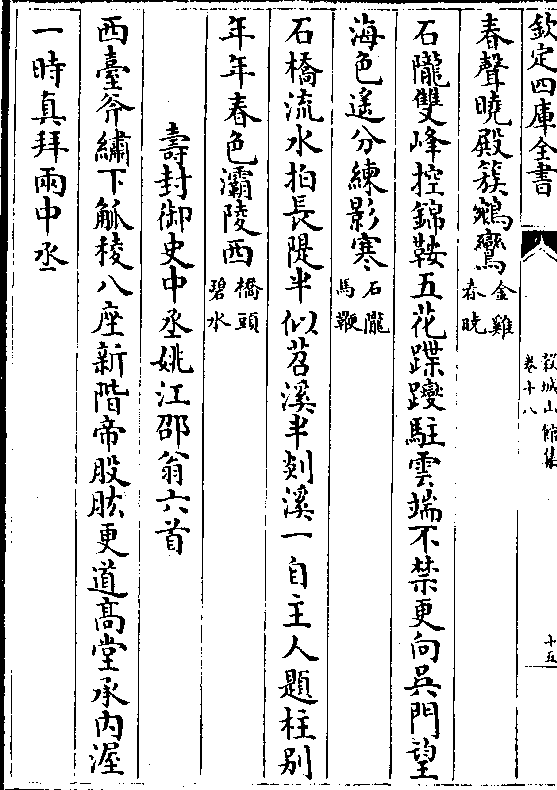 欽定四庫全書
穀城山館集
卷十八
十五
春聲曉殿簇鵷鸞
金雞
春曉
石隴雙峰控錦鞍五花蹀躞駐雲端不禁更向吳門望
海色遙分練影寒
石隴
馬鞭
石橋流水拍長隄半似苕溪半剡溪一自主人題柱別
年年春色灞陵西
橋頭
碧水
壽封御史中丞姚江邵翁六首
西臺斧繡下觚稜八座新階帝股肱更道高堂承内渥
一時真拜兩中丞